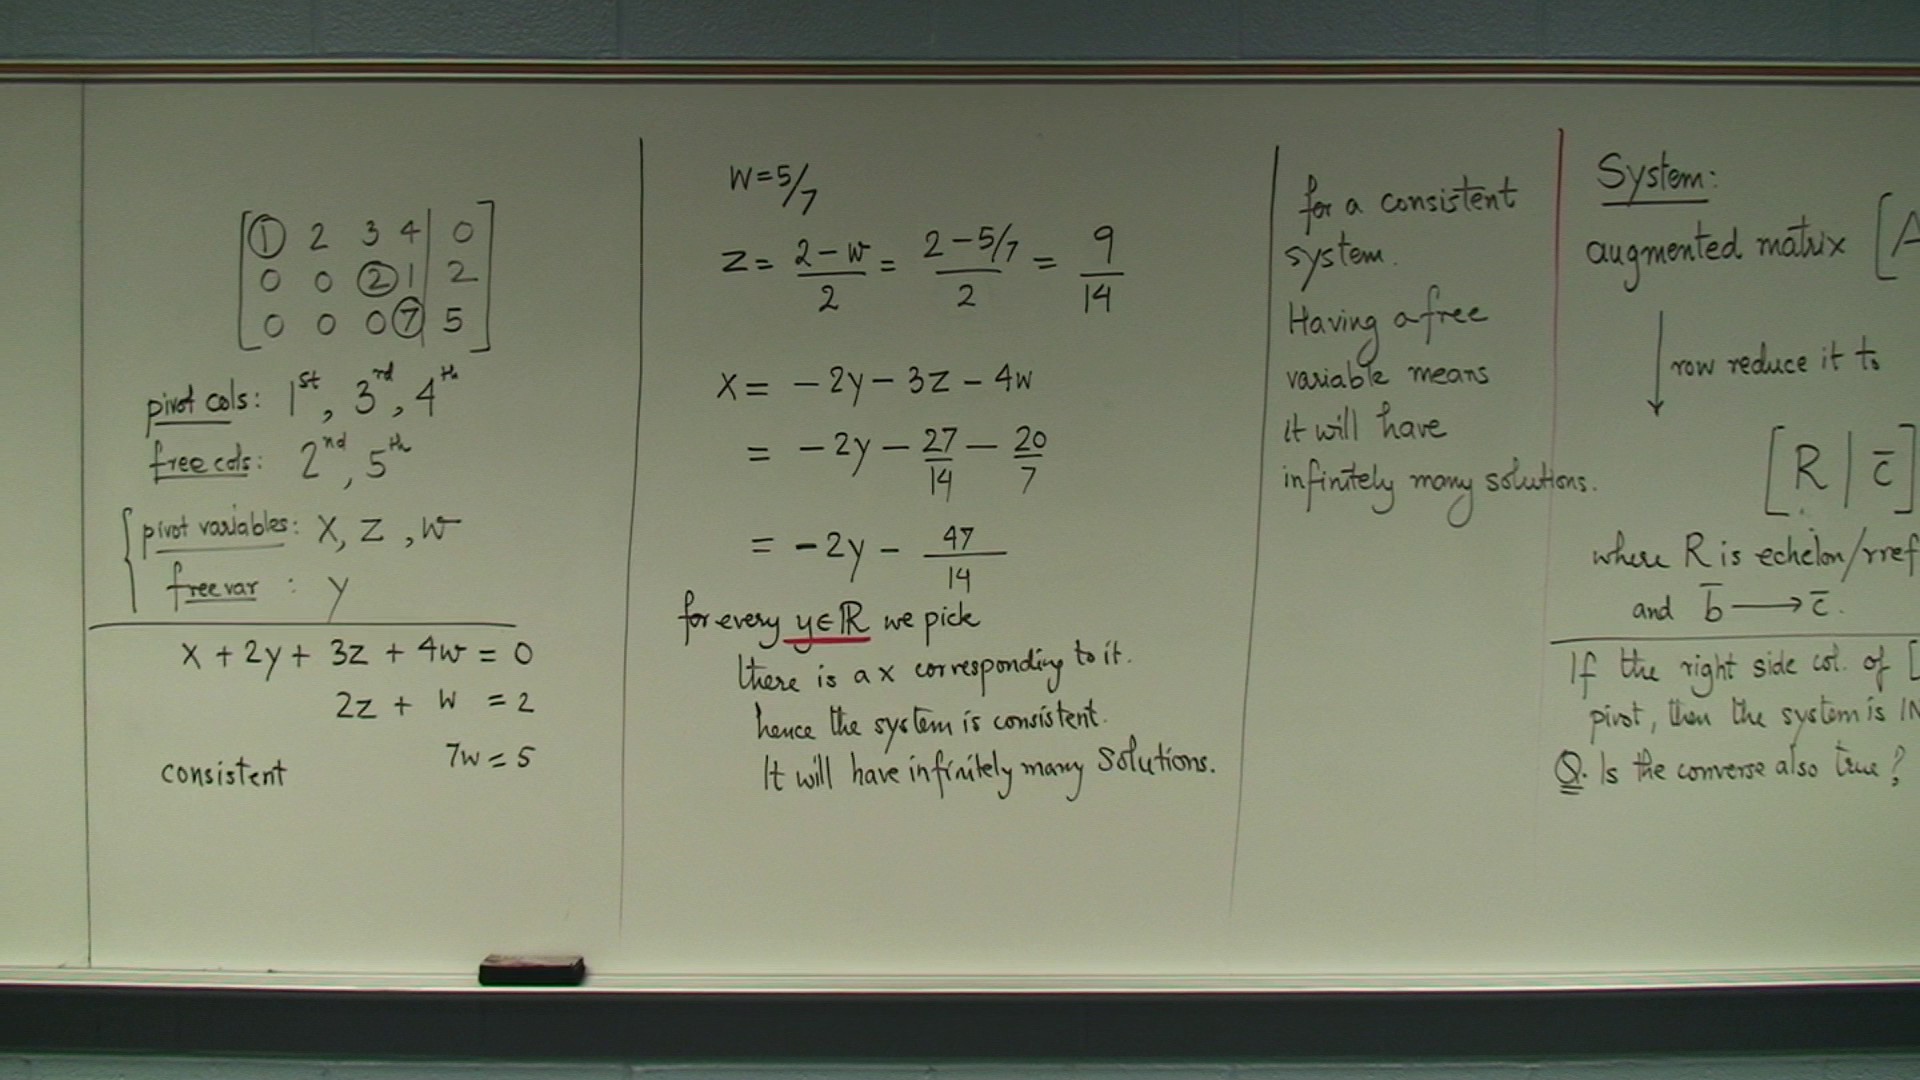 1 2 3 4 | 0
0 0 2 1 | 2
0 0 0 7 | 5
pivot cols: 1st, 3rd, 4th
free cols: 2nd, 5th
pivot variables: x, z, w
free var : y
x + 2y + 3z + 4w = 0
2z + w = 2
7w = 5
consistent
w = 5/7
z = (2 - w)/2 = (2 - 5/7)/2 = 9/14
x = - 2y - 3z - 4w
= - 2y - 27/14 - 20/7
= - 2y - 47/14
for every y ∈ ℝ we pick
there is a x corresponding to it.
hence the system is consistent.
It will have infinitely many solutions.
for a consistent
system.
Having a free
variable means
it will have
infinitely many solutions.
System:
augmented matrix [A
↓ row reduce it to
[R | c̄]
where R is echelon/rref
and b̄ → c̄.
If the right side col. of [
pivot, then the system is IN
Q. Is the converse also true?